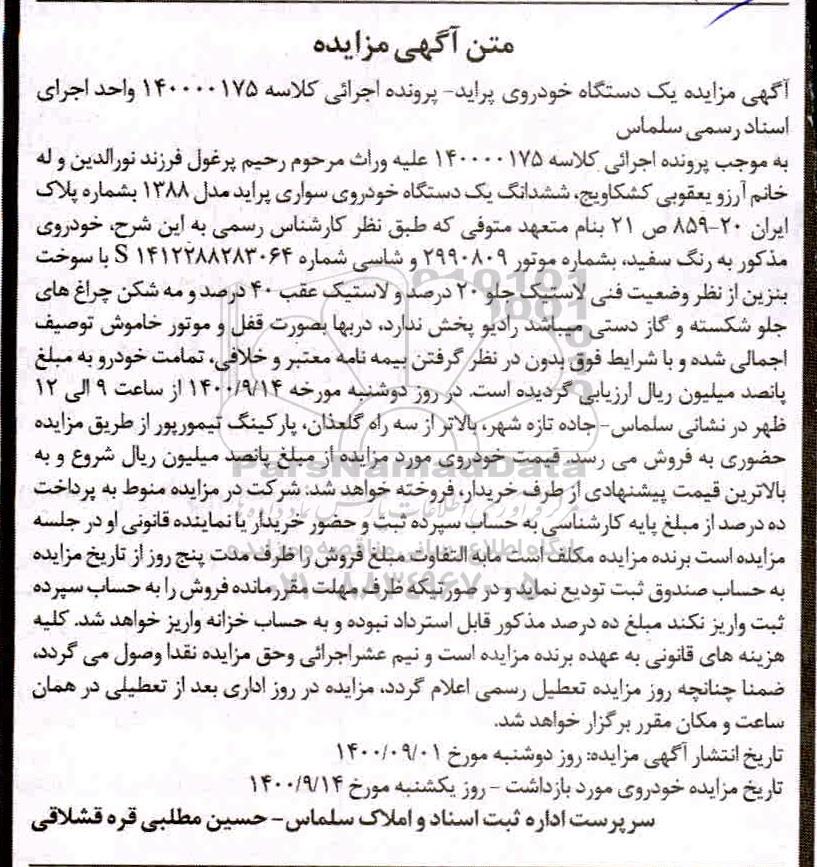 متن آگهی مزایده
آگهی مزایده یک دستگاه خودروی پراید- پرونده اجرائی کلاسه ۱۴۰۰۰۰۱۷۵ واحد اجرای
اسناد رسمی سلماس
به موجب پرونده اجرائی کلاسه ۱۴۰۰۰۰۱۷۵ علیه وراث مرحوم رحیم پرغول فرزند نورالدین و له
خانم آرزو یعقوبی کشکاویج، ششدانگ یک دستگاه خودروی سواری پراید مدل ۱۳۸۸ بشماره پلاک
ایران ۲۰-۸۵۹ ص ۲۱ بنام متعهد متوفی که طبق نظر کارشناس رسمی به این شرح، خودروی
مذکور به رنگ سفید، بشماره موتور ۲۹۹۰۸۰۹ و شاسی شماره S ۱۴۱۲۲۸۸۲۸۳۰۶۴ با سوخت
بنزین از نظر وضعیت فنی لاستیک جلو ۲۰ درصد و لاستیک عقب ۴۰ درصد و مه شکن چراغ های
جلو شکسته و گاز دستی میباشد رادیو پخش ندارد، دربها بصورت قفل و موتور خاموش توصیف
اجمالی شده و با شرایط فوق بدون در نظر گرفتن بیمه نامه معتبر و خلافی، تمامت خودرو به مبلغ
پانصد میلیون ریال ارزیابی گردیده است. در روز دوشنبه مورخه ۱۴۰۰/۹/۱۴ از ساعت ۹ الی ۱۲
ظهر در نشانی سلماس- جاده تازه شهر، بالاتر از سه راه گلعذان، پارکینگ تیمورپور از طریق مزایده
حضوری به فروش می رسد. قیمت خودروی مورد مزایده از مبلغ پانصد میلیون ریال شروع و به
بالاترین قیمت پیشنهادی از طرف خریدار، فروخته خواهد شد: شرکت در مزایده منوط به پرداخت
ده درصد از مبلغ پایه کارشناسی به حساب سپرده ثبت و حضور خریدار یا نماینده قانونی او در جلسه
مزایده است برنده مزایده مکلف است مابه التفاوت مبلغ فروش را ظرف مدت پنج روز از تاریخ مزایده
به حساب صندوق ثبت تودیع نماید و در صورتیکه ظرف مهلت مقرر مانده فروش را به حساب سپرده
ثبت واریز نکند مبلغ ده درصد مذکور قابل استرداد نبوده و به حساب خزانه واریز خواهد شد. کلیه
هزینه های قانونی به عهده برنده مزایده است و نیم عشراجرائی وحق مزایده نقدا وصول می گردد،
ضمنا چنانچه روز مزایده تعطیل رسمی اعلام گردد، مزایده در روز اداری بعد از تعطیلی در همان
ساعت و مکان مقرر برگزار خواهد شد.
تاریخ انتشار آگهی مزایده: روز دوشنبه مورخ ۱۴۰۰/۰۹/۰۱
تاریخ مزایده خودروی مورد بازداشت - روز یکشنبه مورخ ۱۴۰۰/۹/۱۴
سرپرست اداره ثبت اسناد و املاک سلماس- حسین مطلبی قره قشلاقی
ParsNamadData